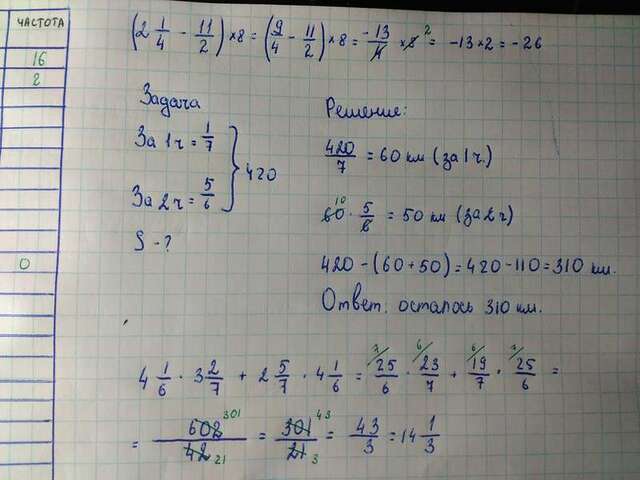 ЧАСТОТА
16
2
0
(2 1/4 - 11/2) × 8 = (9/4 - 11/2) × 8 = -13/4 × 8 2 = -13 × 2 = -26
Задача
За 1 ч = 1/7
За 2 ч = 5/6
} 420
S - ?
Решение:
420/7 = 60 км (за 1 ч.)
60 10 · 5/6 = 50 км (за 2 ч)
420 - (60 + 50) = 420 - 110 = 310 км.
Ответ. осталось 310 км.
4 1/6 · 3 2/7 + 2 5/7 · 4 1/6 = 7/ 25/6 · 6/ 23/7 + 6/ 19/7 · 7/ 25/6 =
= 602 301/42 21 = 301 43/21 3 = 43/3 = 14 1/3